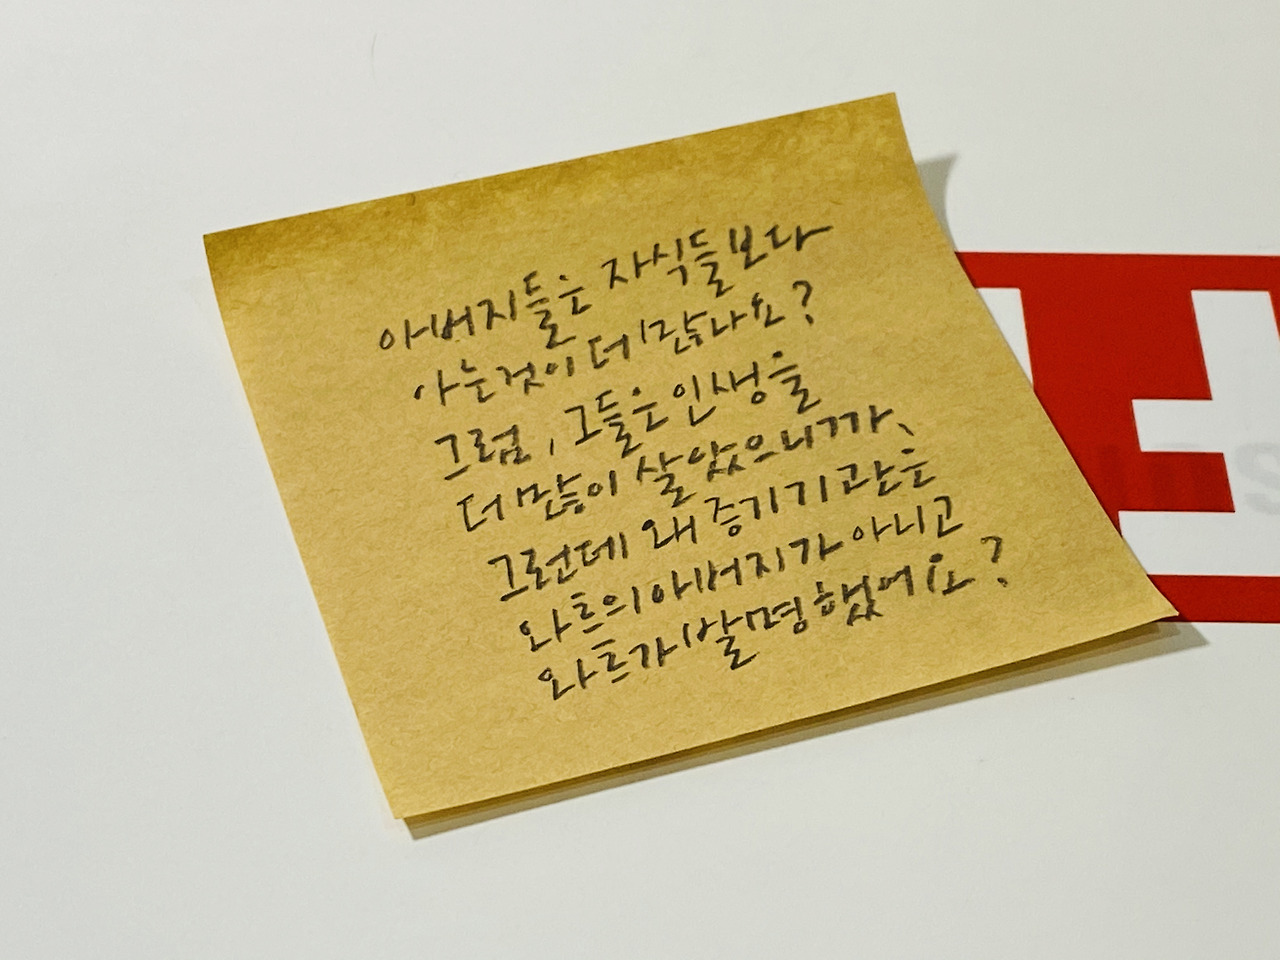 아버지들은 자식들보다
아는것이 더 많나요?
그럼, 그들은 인생을
더 많이 살았으니까、
그런데 왜 증기기관은
와트의 아버지가 아니고
와트가 발명했어요?